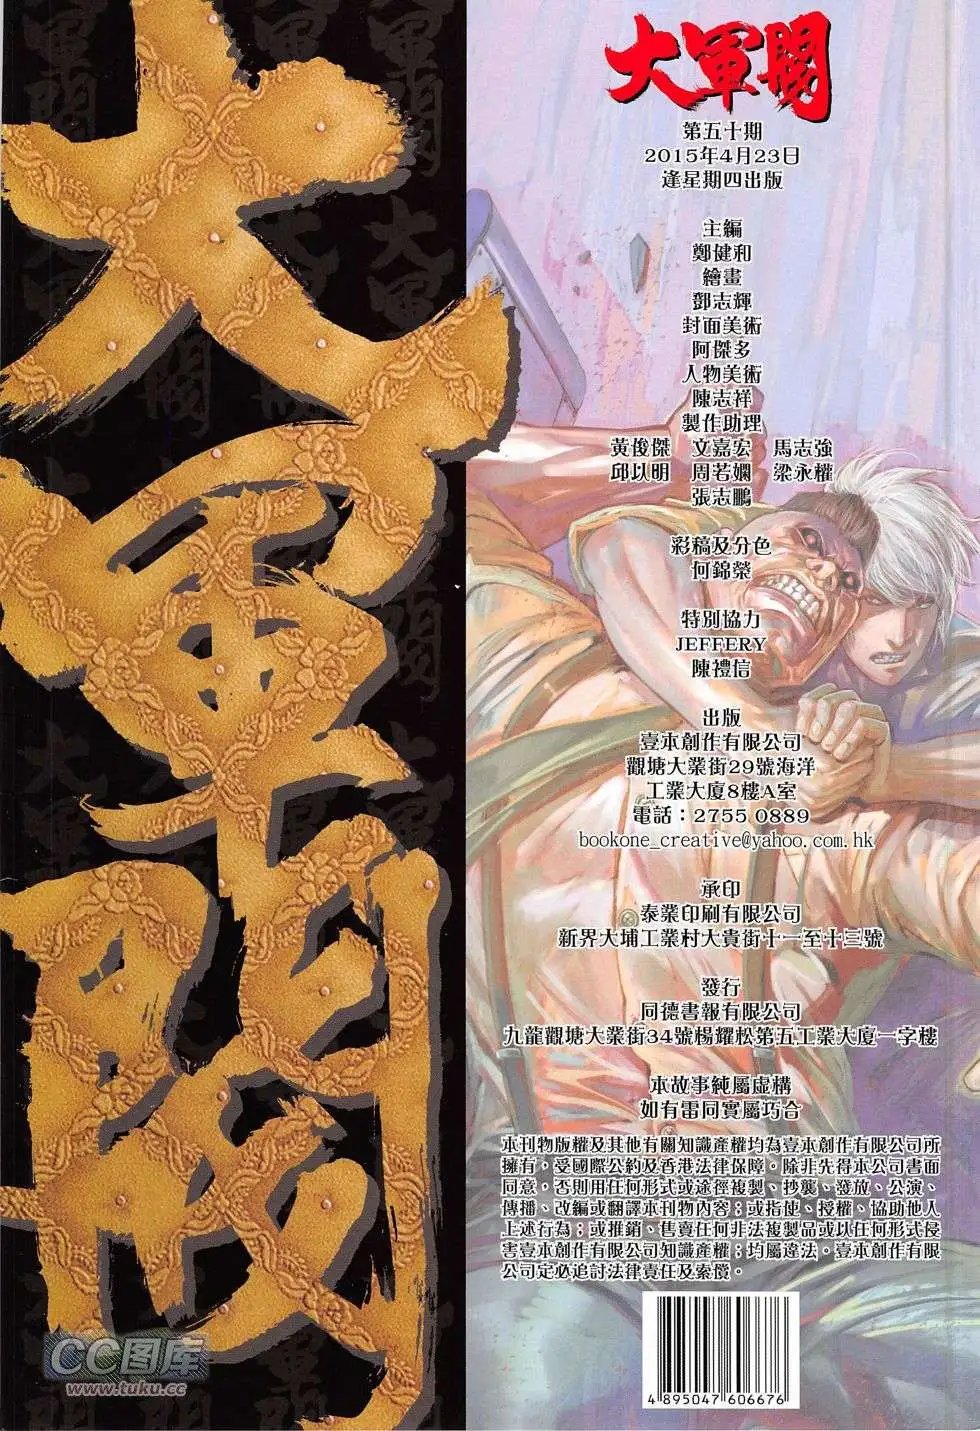 大軍閥
大軍閥
第五十期
2015年4月23日
逢星期四出版
主編
鄭健和
繪畫
鄧志輝
封面美術
阿傑多
人物美術
陳志祥
製作助理
黃俊傑 文嘉宏 馬志強
邱以明 周若嫻 梁永權
張志鵬
彩稿及分色
何錦榮
特別協力
JEFFERY
陳禮信
出版
壹本創作有限公司
觀塘大業街29號海洋
工業大廈8樓A室
電話：2755 0889
bookone_creative@yahoo.com.hk
承印
泰業印刷有限公司
新界大埔工業村大貴街十一至十三號
發行
同德書報有限公司
九龍觀塘大業街34號楊耀松第五工業大廈一字樓
本故事純屬虛構
如有雷同實屬巧合
本刊物版權及其他有關知識產權均為壹本創作有限公司所
擁有，受國際公約及香港法律保障。除非先得本公司書面
同意，否則用任何形式或途徑複製、抄襲、發放、公演、
傳播、改編或翻譯本刊物內容；或指使、授權、協助他人
上述行為；或推銷、售賣任何非法複製品或以任何形式侵
害壹本創作有限公司知識產權；均屬違法。壹本創作有限
公司定必追討法律責任及索償。
4 895047 606676
CC图库
www.tuku.cc